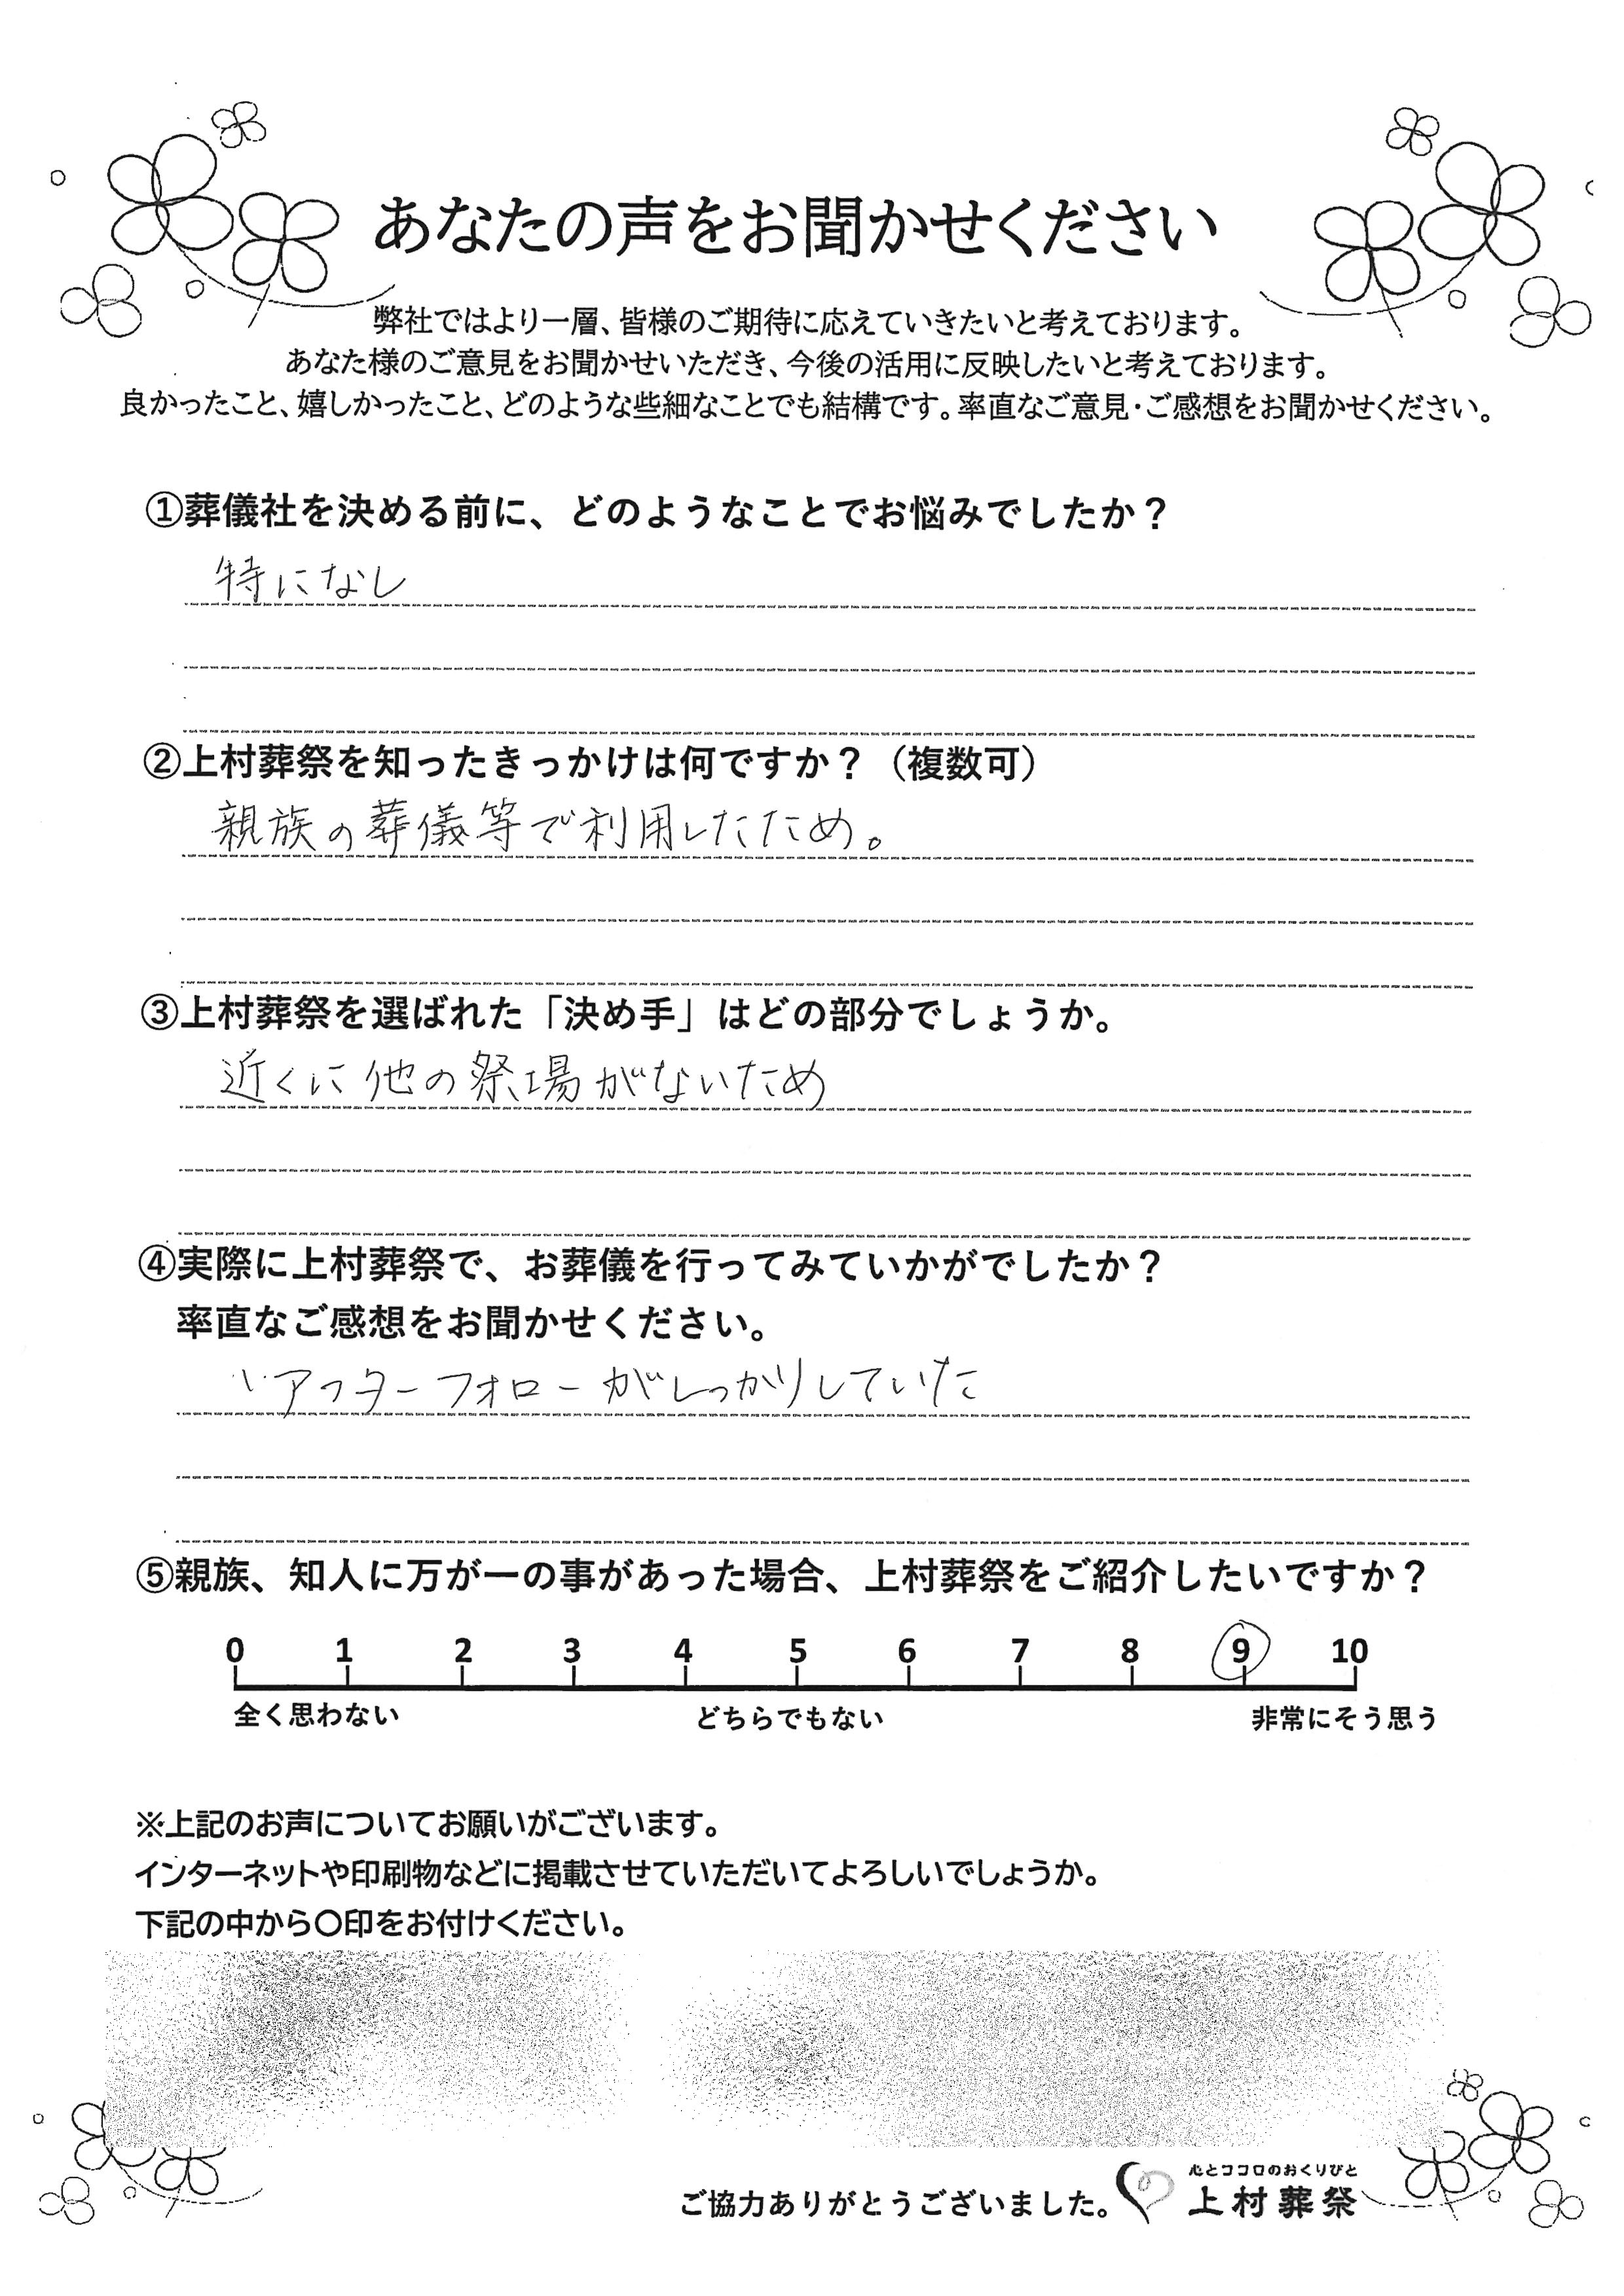 あなたの声をお聞かせください
弊社ではより一層、皆様のご期待に応えていきたいと考えております。
あなた様のご意見をお聞かせいただき、今後の活用に反映したいと考えております。
良かったこと、嬉しかったこと、どのような些細なことでも結構です。率直なご意見・ご感想をお聞かせください。
①葬儀社を決める前に、どのようなことでお悩みでしたか？
特になし
②上村葬祭を知ったきっかけは何ですか？（複数可）
親族の葬儀等で利用したため。
③上村葬祭を選ばれた「決め手」はどの部分でしょうか。
近くに他の祭場がないため
④実際に上村葬祭で、お葬儀を行ってみていかがでしたか？
率直なご感想をお聞かせください。
アフターフォローがしっかりしていた
⑤親族、知人に万が一の事があった場合、上村葬祭をご紹介したいですか？
0 1 2 3 4 5 6 7 8 9 10
全く思わない どちらでもない 非常にそう思う
※上記のお声についてお願いがございます。
インターネットや印刷物などに掲載させていただいてよろしいでしょうか。
下記の中から〇印をお付けください。
心とココロのおくりびと
ご協力ありがとうございました。 上村葬祭